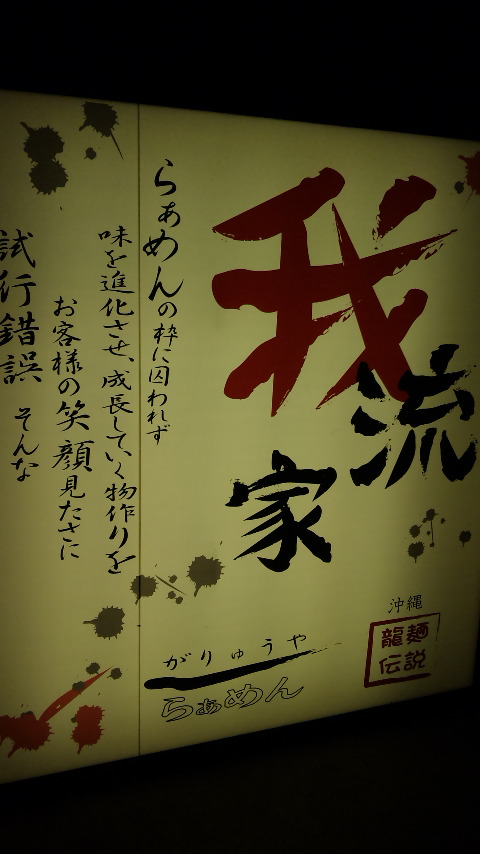 我流家
沖縄
龍麺
伝説
がりゅうや
らぁめん
らぁめんの枠に囚われず
味を進化させ、成長していく物作りを
お客様の笑顔見たさに
試行錯誤 そんな